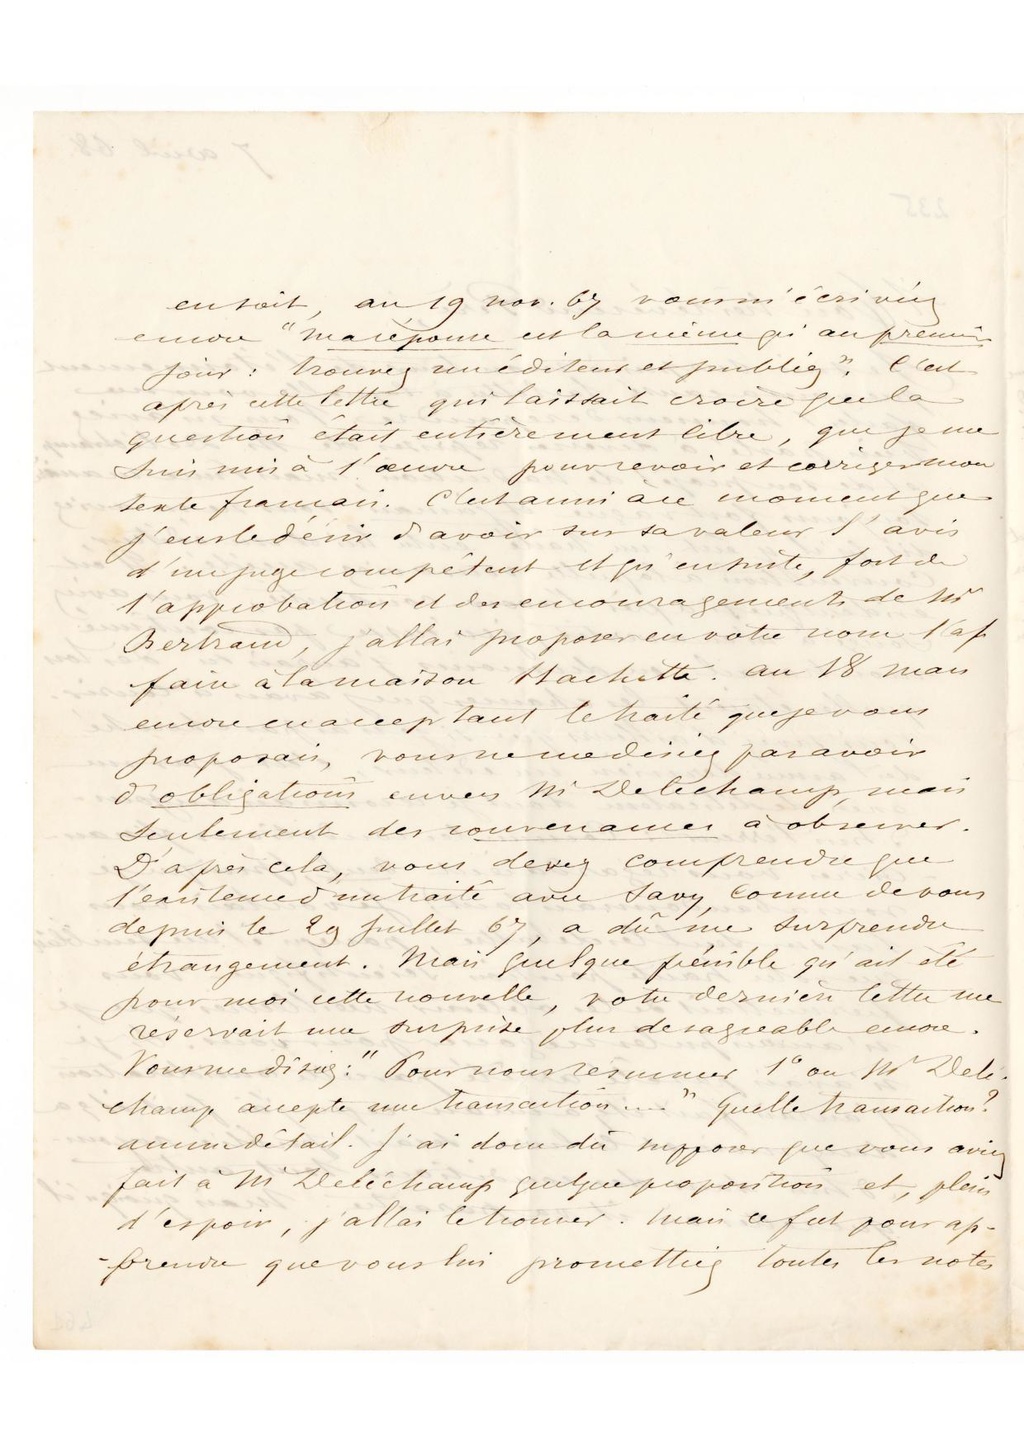 en soit, au 19 nov. 67 vous m'écriviez
encore "ma réponse est la même qu'au premier
jour : trouvez un éditeur et publiez". C'est
après cette lettre qui laissait croire que la
question était entièrement libre, que je me
suis mis à l'œuvre pour revoir et corriger mon
texte français. C'est aussi à ce moment que
j'eus le désir d'avoir sur sa valeur l'avis
d'un juge compétent et qu'ensuite, fort de
l'approbation et des encouragements de Mr
Bertrand, j'allai proposer en votre nom l'af
faire à la maison Hachette. Au 18 mars
encore en acceptant le traité que je vous
proposais, vous ne me disiez pas avoir
d'obligations envers Mr Delechamp, mais
seulement des convenances à observer.
D'après cela, vous devez comprendre que
l'existence d'un traité avec Savy, connu de vous
depuis le 29 juillet 67, a dû me surprendre
étrangement. Mais quelque pénible qu'ait été
pour moi cette nouvelle, votre dernière lettre me
réservait une surprise plus désagréable encore.
Vous me disiez : "Pour nous résumer 1° ou Mr Delé-
champ accepte une transaction....." Quelle transaction?
aucun détail. J'ai donc dû supposer que vous aviez
fait à Mr Deléchamp quelque proposition et, plein
d'espoir, j'allai le trouver. Mais ce fut pour ap-
-prendre que vous lui promettiez toutes les notes